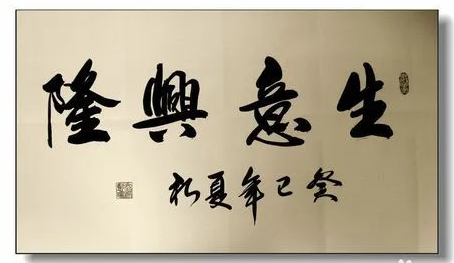 生意興隆
癸巳年夏